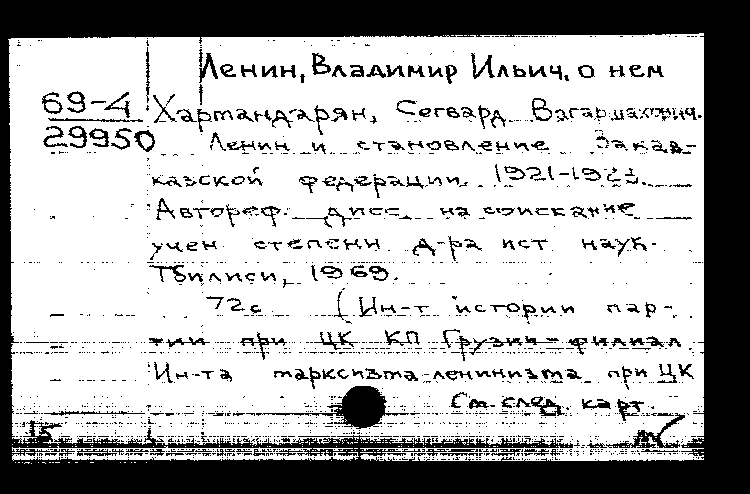 Ленин, Владимир Ильич, о нем
69-4
29950
Хармандарян, Сегвард Вагаршакович.
Ленин и становление Закав-
казской федерации 1921-1923.
Автореф. дисс. на соискание
учен степени д-ра ист наук.
Тбилиси, 1969.
72с (Ин-т истории пар-
тии при ЦК КП Грузии - филиал
Ин-та марксизма-ленинизма при ЦК
См. след. карт.
15